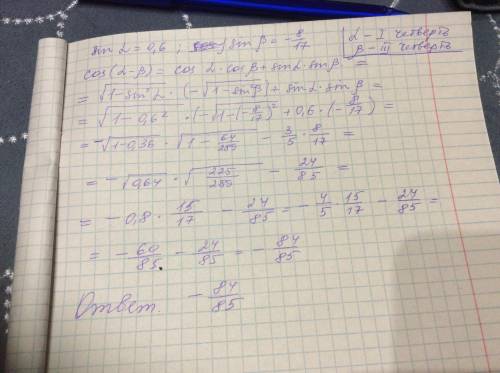 sin α = 0,6 ; sin β = -8/17 | α - I четверть
β - III четверть
cos(α-β) = cos α · cos β + sin α · sin β =
= √(1-sin²α) · (-√(1-sin²β)) + sin α · sin β =
= √(1-0,6²) · (-√(1-(-8/17)²)) + 0,6 · (-8/17) =
= -√(1-0,36) · √(1-64/289) - 3/5 · 8/17 =
= -√0,64 · √(225/289) - 24/85 =
= -0,8 · 15/17 - 24/85 = -4/5 · 15/17 - 24/85 =
= -60/85 - 24/85 = -84/85
Ответ. -84/85